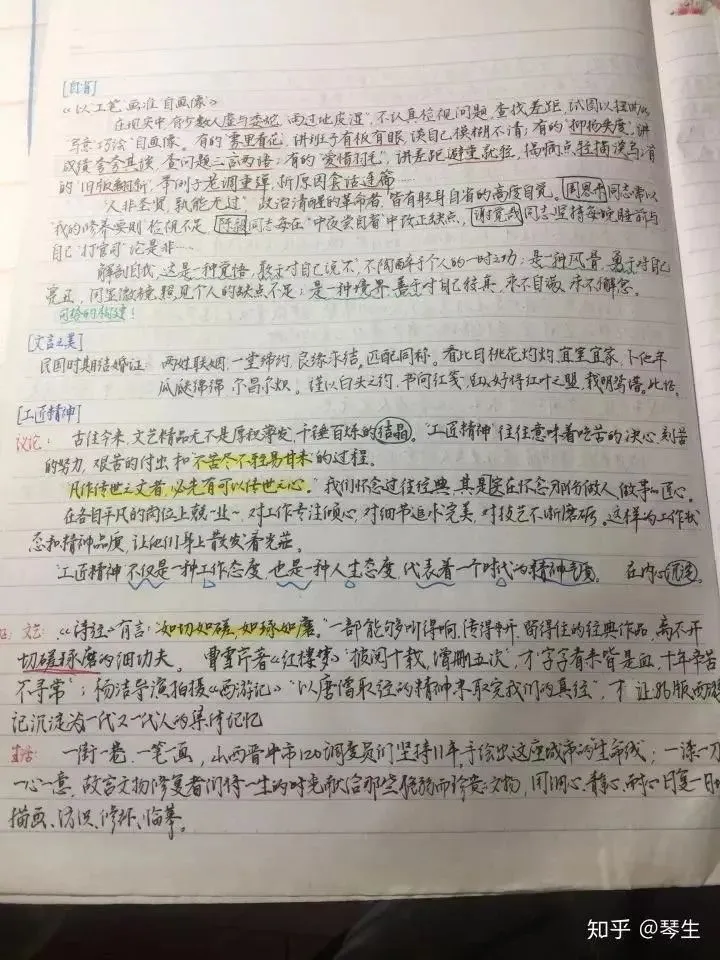 [自省]
《以“工笔”画准“自画像”》
在现实中,有少数人虚与委蛇,“雨过地皮湿”,不认真检视问题,查找差距,试图以扭曲的
写意巧绘“自画像”。有的“雾里看花”,讲班子有板有眼,谈自己模糊不清;有的“抑扬失度”,讲
成绩夸夸其谈,查问题三言两语;有的“爱惜羽毛”,讲差距避重就轻,搞病点轻描淡写;有
的“旧版翻新”,举例子老调重弹,析原因套话连篇……
“人非圣贤,孰能无过”政治清醒的革命者,皆有躬身自省的高度自觉。周恩来同志常以
“我的修养要则”检视不足,陈毅同志每在“中夜尝自省”中改正缺点,谢觉哉同志坚持每晚睡前与
自己“打官司”论是非…
解剖自我,这是一种觉悟,敢于对自己说不,不陶醉于个人的一时之功;是一种风骨,勇于对自己
亮丑,用显微镜照见个人的缺点不足;是一种境界,善于对自己较真,永不自满,永不懈怠。
[文言之美]
民国时期结婚证:两姓联姻,一堂缔约,良缘永结,匹配同称。看此日桃花灼灼,宜室宜家,卜他年
瓜瓞绵绵,尔昌尔炽。谨以白头之约,书向红笺,好将红叶之盟,载明鸳谱。此证。
[工匠精神]
议论:古往今来,文艺精品无不是厚积薄发,千锤百炼的结晶。“工匠精神”往往意味着吃苦的决心,刻苦
的努力,艰苦的付出和“不苦尽不轻易甘来”的过程。
“凡作传世之文者,必先有可以传世之心。”我们怀念过往经典,其是实在怀念那份做人做事的匠心。
在各自平凡的岗位上兢兢业业,对工作专注倾心,对细节追求完美,对技艺不断磨砺。这样的工作状
态和精神品质,让他们身上散发着光芒。
工匠精神不仅是一种工作态度,也是一种人生态度,代表着一个时代的精神气质。在内心沉淀。
文艺:《诗经》有言:“如切如磋,如琢如磨。”一部能够叫得响,传得开,留得住的经典作品,离不开
切磋琢磨的细功夫。曹雪芹著《红楼梦》“披阅十载,增删五次”,才“字字看来皆是血,十年辛苦
不寻常”;杨洁导演拍摄《西游记》“以唐僧取经的精神来取完我们的真经”,才让86版西游
记沉淀为一代又一代人的集体记忆
生活:一街一巷,一笔一画,山西晋中市120调度员们坚持11年,手绘出这座城市的生命线;一漆一刀
一心一意,故宫文物修复者们将一生的时光献给那些脆弱而珍贵文物,用细心、静心、耐心日复一日地
描画、纺织、修补、临摹。
知乎 @琴生